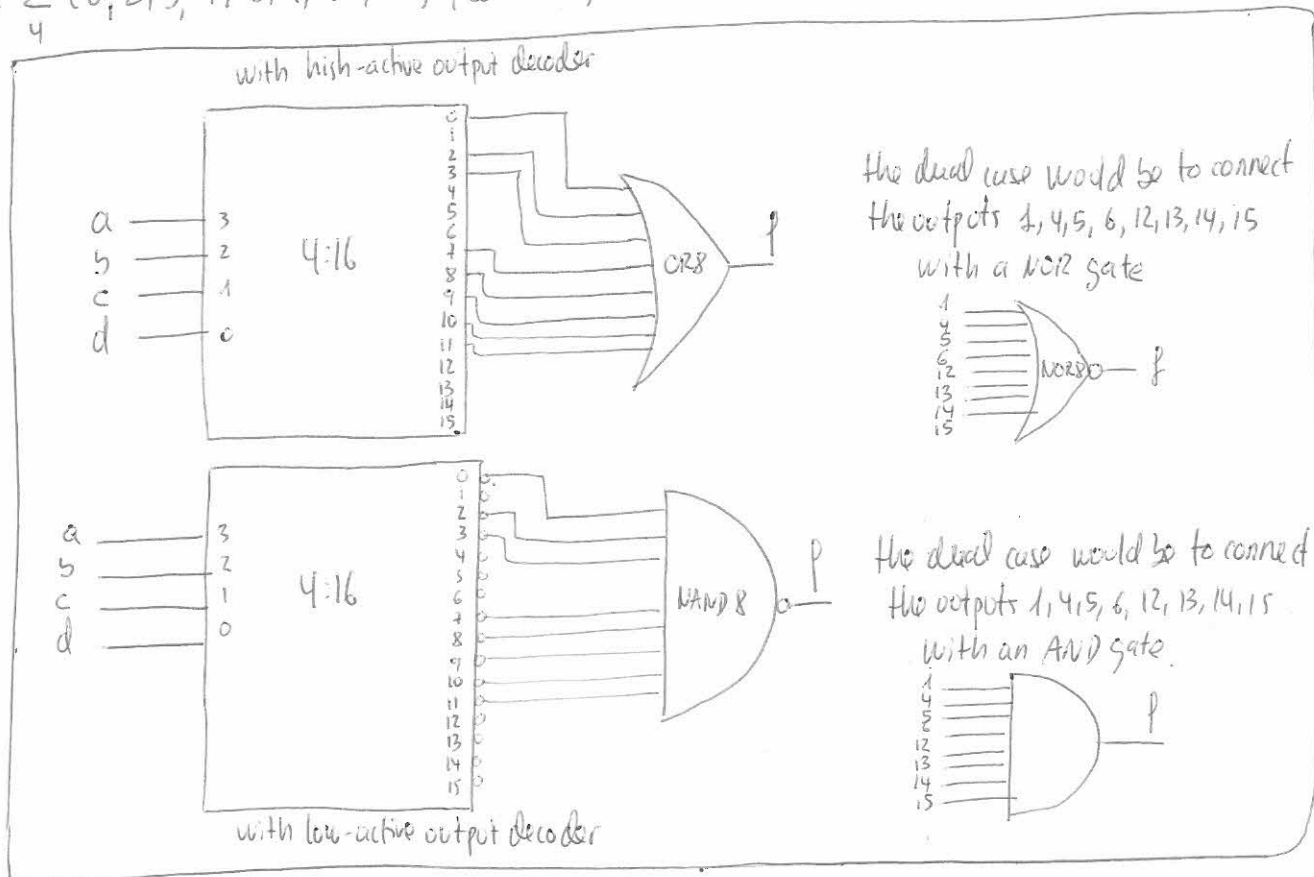 4
with high-active output decoder
0
1
2
3
4
5
6
7
8
9
10
11
12
13
14
15
a 3
b 2
c 1
d 0
4:16
OR8
f
the dual case would be to connect
the outputs 1, 4, 5, 6, 12, 13, 14, 15
with a NOR gate
1
4
5
6
12
13
14
15
NOR8
f
0
1
2
3
4
5
6
7
8
9
10
11
12
13
14
15
a 3
b 2
c 1
d 0
4:16
NAND8
f
the dual case would be to connect
the outputs 1, 4, 5, 6, 12, 13, 14, 15
with an AND gate.
1
4
5
6
12
13
14
15
f
with low-active output decoder